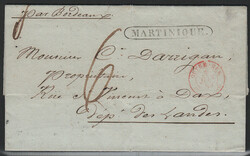 par Bordeaux
MARTINIQUE.
6
Monsieur C. Darrigan,
Propriétaire
Rue St Vincent à Dax,
Dép. des Landes.